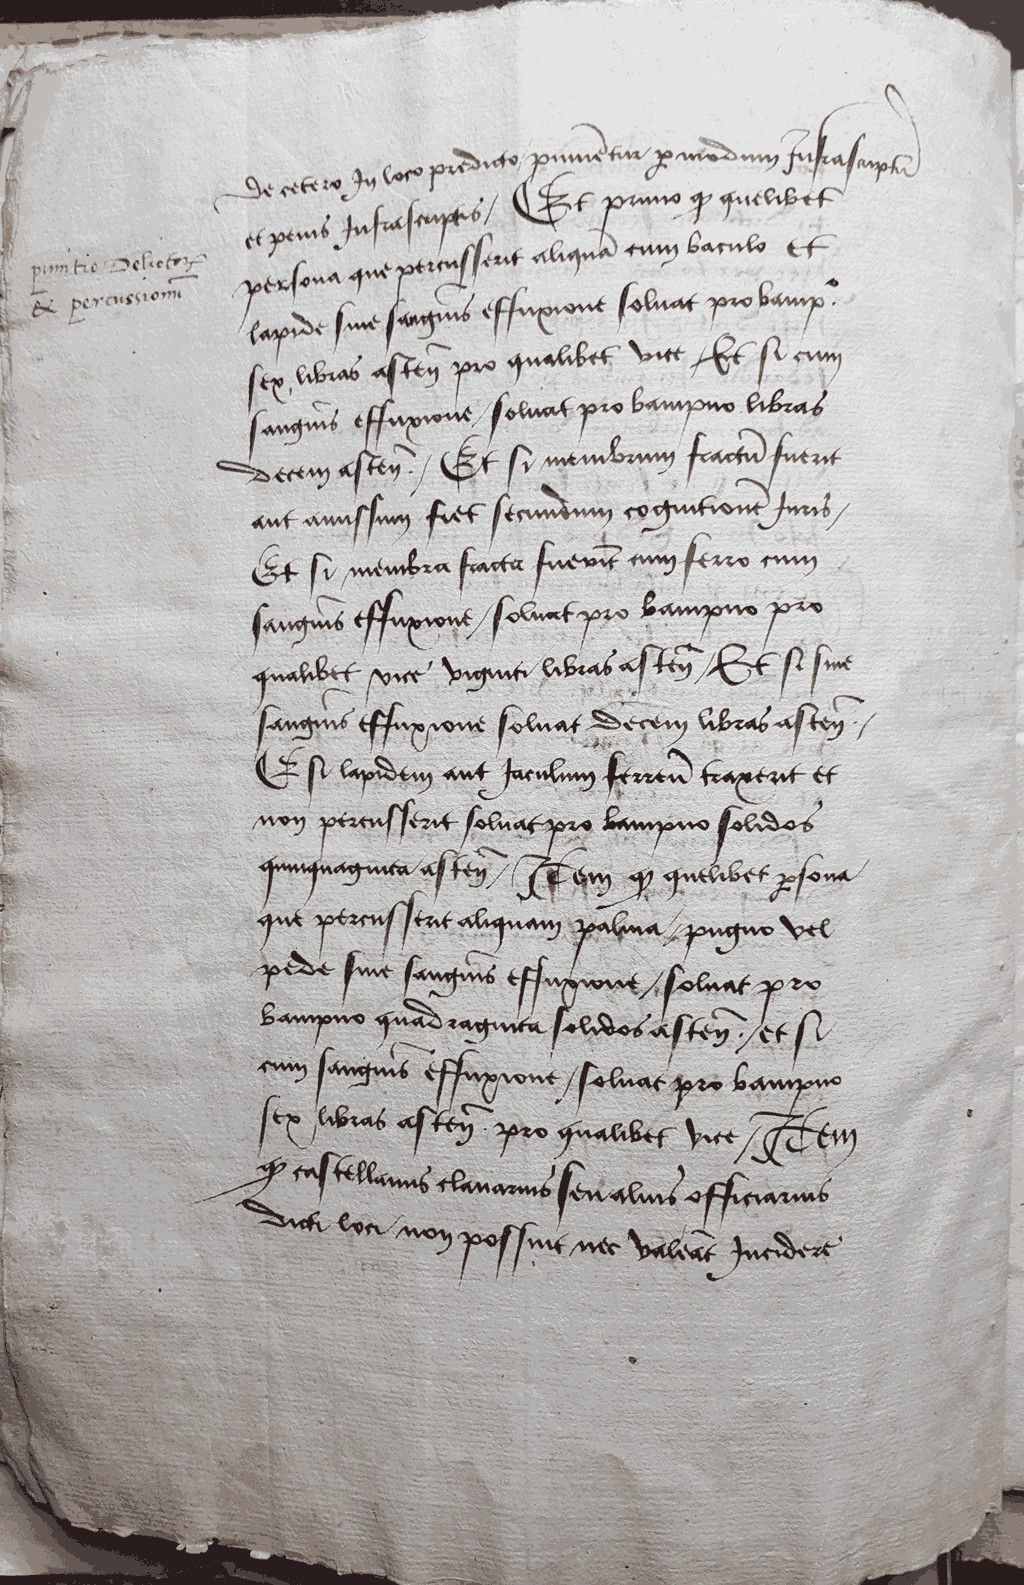 de cetero In loco predicto puniẽtur ꝑ modum Infrascriptũ
et penis Infrascriptis / Et primo ꝙ quelibet
punitio Delictoꝝ
& percussionũ
persona que percusserit aliquã cum baculo et
lapide sine sanguĩs effuxione soluat pro bampº.
sex libras asteñ pro qualibet vice / Et si cum
sanguĩs effuxione / soluat pro bampno libras
decem asteñ. / Et si membrum fractũ fuerit
aut amissum fiet secundum cognitionẽ Iuris /
Et si membra fracta fuerĩt cum ferro cum
sanguĩs effuxione / soluat pro bampno pro
qualibet vice viginti libras asteñ / Et si sine
sanguĩs effuxione soluat decem libras asteñ. /
Et si lapidem aut Iaculum ferreũ traxerit et
non percusserit soluat pro bampno solidos
quinquaginta asteñ / Item ꝙ quelibet ꝑsona
que percusserit aliquam palma / pugno vel
pede sine sanguĩs effuxione / soluat pro
bampno quadraginta solidos asteñ. / et si
cum sanguĩs effuxione / soluat pro bampno
sex libras asteñ. pro qualibet vice / Item
ꝙ castellanus clauarius seu alius officiarius
dicti loci non possint nec valeãt Incidere